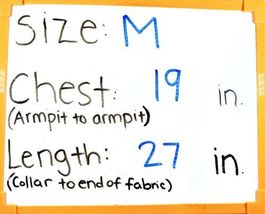 Size: M
Chest: 19 in.
(Armpit to armpit)
Length: 27 in.
(Collar to end of fabric)